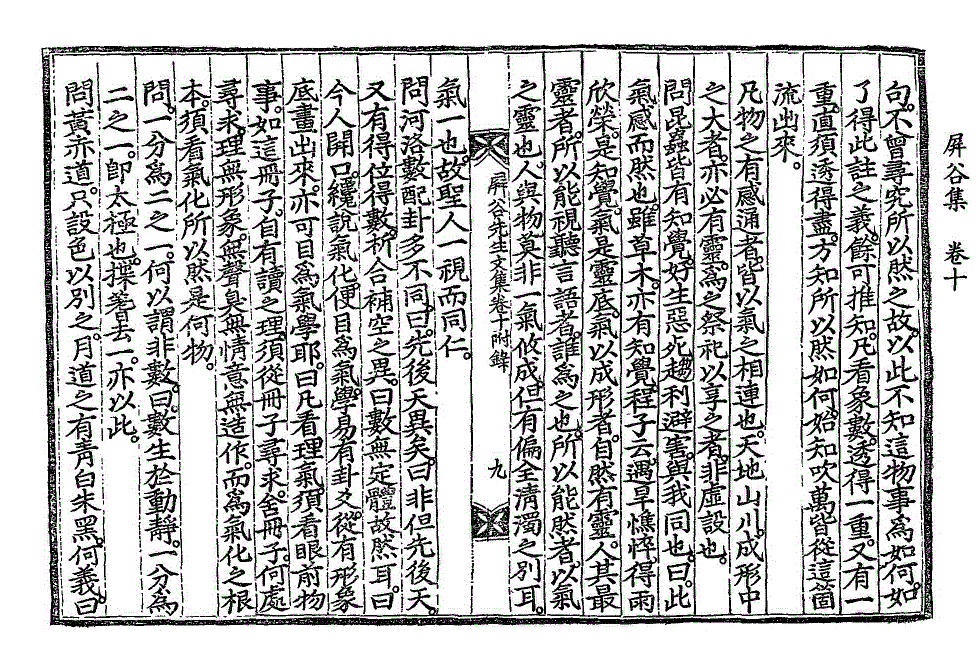 屏谷集 卷十
句。不曾尋究所以然之故。以此不知這物事爲如何。如
了得此註之義。餘可推知。凡看象數。透得一重。又有一
重。直須透得盡。方知所以然如何。始知吹萬皆從這箇
流出來。
凡物之有感通者。皆以氣之相連也。天地山川。成形中
之大者。亦必有靈。爲之祭祀以享之者。非虛設也。
問昆蟲皆有知覺。好生惡死。趨利避害。與我同也。曰。此
氣感而然也。雖草木。亦有知覺。程子云。遇旱憔悴得雨
欣榮。是知覺。氣是靈底。氣以成形者。自然有靈。人其最
靈者。所以能視聽言語者。誰爲之也。所以能然者。以氣
之靈也。人與物莫非一氣攸成。但有偏全淸濁之別耳。
屏谷先生文集卷十附錄 九
氣一也。故聖人一視而同仁。
問河洛數配卦多不同。曰。先後天異矣。曰。非但先後天。
又有得位得數。析合補空之異。曰。數無定體故然耳。曰。
今人開口。纔說氣化。便目爲氣學。易有卦爻。從有形象
底畫出來。亦可目爲氣學耶。曰。凡看理氣。須看眼前物
事。如這冊子。自有讀之理。須從冊子尋求。舍冊子。何處
尋求。理無形象。無聲臭。無情意無造作。而爲氣化之根
本。須看氣化所以然是何物。
問。一分爲二之一。何以謂非數。曰。數生於動靜。一分爲
二之一。卽太極也。揲蓍去一。亦以此。
問黃赤道。只設色以別之。月道之有靑白朱黑。何義。曰。